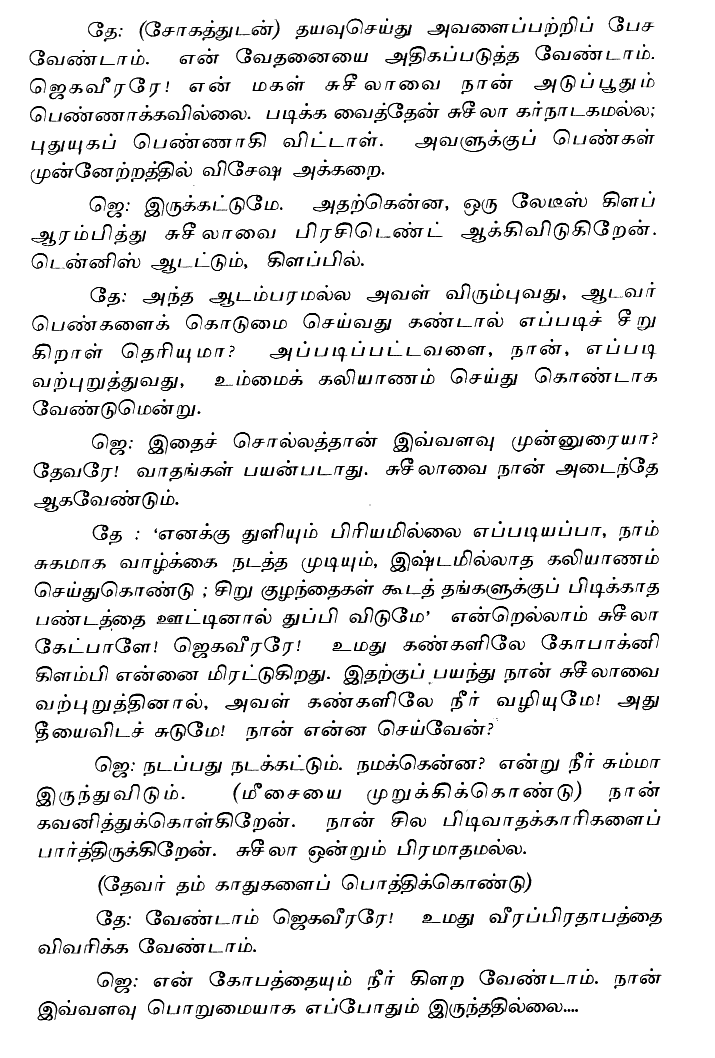 தே: (சோகத்துடன்) தயவுசெய்து அவளைப்பற்றிப் பேச
வேண்டாம். என் வேதனையை அதிகப்படுத்த வேண்டாம்.
ஜெகவீரரே! என் மகள் சுசீலாவை நான் அடுப்பூதும்
பெண்ணாக்கவில்லை. படிக்க வைத்தேன் சுசீலா கர்நாடகமல்ல;
புதுயுகப் பெண்ணாகி விட்டாள். அவளுக்குப் பெண்கள்
முன்னேற்றத்தில் விசேஷ அக்கறை.
ஜெ: இருக்கட்டுமே. அதற்கென்ன, ஒரு லேடீஸ் கிளப்
ஆரம்பித்து சுசீலாவை பிரசிடெண்ட் ஆக்கிவிடுகிறேன்.
டென்னிஸ் ஆடட்டும், கிளப்பில்.
தே: அந்த ஆடம்பரமல்ல அவள் விரும்புவது, ஆடவர்
பெண்களைக் கொடுமை செய்வது கண்டால் எப்படிச் சீறு
கிறாள் தெரியுமா? அப்படிப்பட்டவளை, நான், எப்படி
வற்புறுத்துவது, உம்மைக் கலியாணம் செய்து கொண்டாக
வேண்டுமென்று.
ஜெ: இதைச் சொல்லத்தான் இவ்வளவு முன்னுரையா?
தேவரே! வாதங்கள் பயன்படாது. சுசீலாவை நான் அடைந்தே
ஆகவேண்டும்.
தே : ‘எனக்கு துளியும் பிரியமில்லை எப்படியப்பா, நாம்
சுகமாக வாழ்க்கை நடத்த முடியும், இஷ்டமில்லாத கலியாணம்
செய்துகொண்டு ; சிறு குழந்தைகள் கூடத் தங்களுக்குப் பிடிக்காத
பண்டத்தை ஊட்டினால் துப்பி விடுமே’ என்றெல்லாம் சுசீலா
கேட்பாளே! ஜெகவீரரே! உமது கண்களிலே கோபாக்னி
கிளம்பி என்னை மிரட்டுகிறது. இதற்குப் பயந்து நான் சுசீலாவை
வற்புறுத்தினால், அவள் கண்களிலே நீர் வழியுமே! அது
தீயைவிடச் சுடுமே! நான் என்ன செய்வேன்?
ஜெ: நடப்பது நடக்கட்டும். நமக்கென்ன? என்று நீர் சும்மா
இருந்துவிடும். (மீசையை முறுக்கிக்கொண்டு) நான்
கவனித்துக்கொள்கிறேன். நான் சில பிடிவாதக்காரிகளைப்
பார்த்திருக்கிறேன். சுசீலா ஒன்றும் பிரமாதமல்ல.
(தேவர் தம் காதுகளைப் பொத்திக்கொண்டு)
தே: வேண்டாம் ஜெகவீரரே! உமது வீரப்பிரதாபத்தை
விவரிக்க வேண்டாம்.
ஜெ: என் கோபத்தையும் நீர் கிளற வேண்டாம். நான்
இவ்வளவு பொறுமையாக எப்போதும் இருந்ததில்லை....